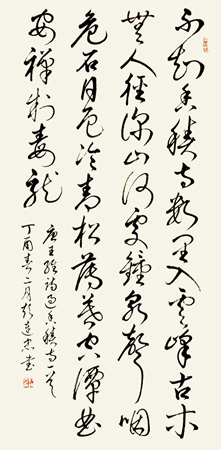 不知香積寺數里入雲峰古木
無人徑深山何處鐘泉聲咽
危石日色冷青松薄暮空潭曲
安禪制毒龍
唐王維詩過香積寺一首
丁酉春二月書